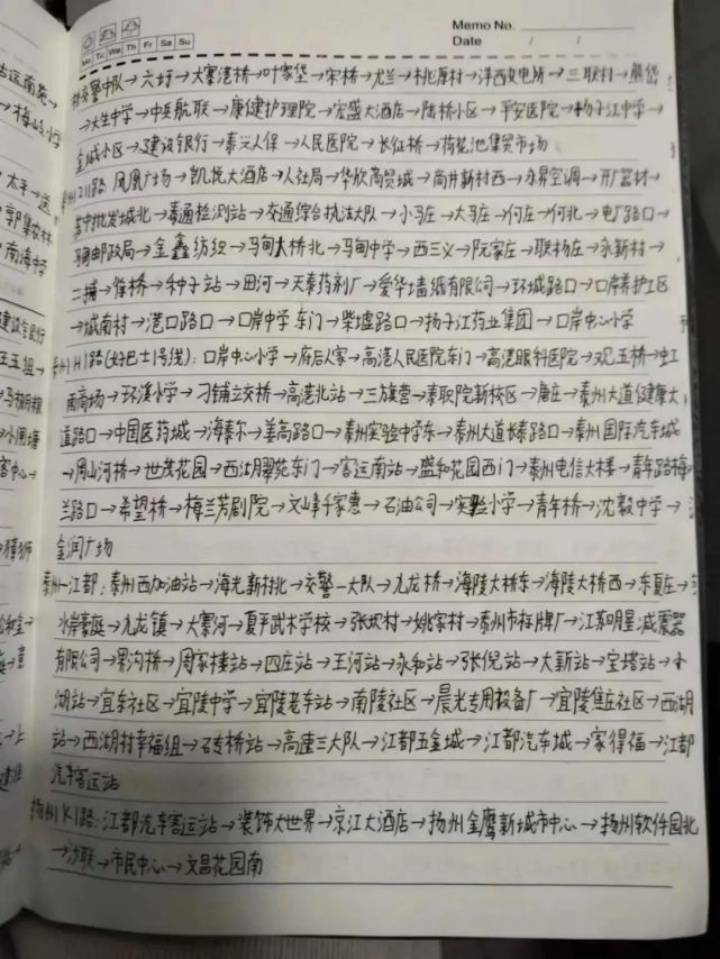 Memo No.
Mo Tu We Th Fr Sa Su
Date / /
交警中队→六圩→大寨港桥→叶家垡→宋桥→尤兰→桃厚村→洋西变电所→三联村→熊岱
→大生中学→中亚航联→康健护理院→宏盛大酒店→陆桥小区→平安医院→扬子江中学→
金城小区→建设银行→泰兴人保→人民医院→长征桥→荷花池集贸市场
211路 凤凰广场→凯悦大酒店→人社局→华欣商贸城→高井新村西→永昇空调→开广器材→
苏中批发城北→泰通检测站→交通综合执法大队→小马庄→大马庄→何庄→何北→电厂路口→
马甸邮政局→金鑫纺织→马甸大桥北→马甸中学→西三义→阮家庄→联杨庄→永新村→
二捕→雁桥→种子站→田河→天泰药剂厂→爱华墙纸有限公司→环城路口→口岸养护工区
→城南村→港口路口→口岸中学东门→柴墟路口→扬子江药业集团→口岸中心小学
州H1路(好巴士1号线):口岸中心小学→府后人家→高港人民医院东门→高港眼科医院→双五桥→虹
雨商场→环溪小学→刁铺立交桥→高港北站→三旗营→泰职院新校区→唐庄→泰州大道健康大
道路口→中国医药城→海泰尔→姜高路口→泰州实验中学东→泰州大道长泰路口→泰州国际汽车城
→周山河桥→世茂花园→西湖翠苑东门→客运南站→盛和花园西门→泰州电信大楼→青年路梅
兰路口→希望桥→梅兰芳剧院→文峰千家惠→石油公司→实验小学→青年桥→沈毅中学→
金润广场
泰州—江都:泰州西加油站→海光新村北→交警一大队→九龙桥→海陵大桥东→海陵大桥西→东夏庄→
水岸豪庭→九龙镇→大寨河→夏平武术学校→张坝村→姚家村→泰州市标牌厂→江苏明星减震器
有限公司→界沟桥→周家楼站→四庄站→王河站→永和站→张倪站→大新站→宝塔站→小
湖站→宜东社区→宜陵中学→宜陵老车站→南陵社区→晨光专用设备厂→宜陵焦庄社区→西湖
站→西湖村幸福组→砖桥站→高速三大队→江都五金城→江都汽车城→家得福→江都
汽车客运站
扬州K1路:江都汽车客运站→装饰大世界→京江大酒店→扬州金鹰新城市中心→扬州软件园北
→沙联→市民中心→文昌花园南